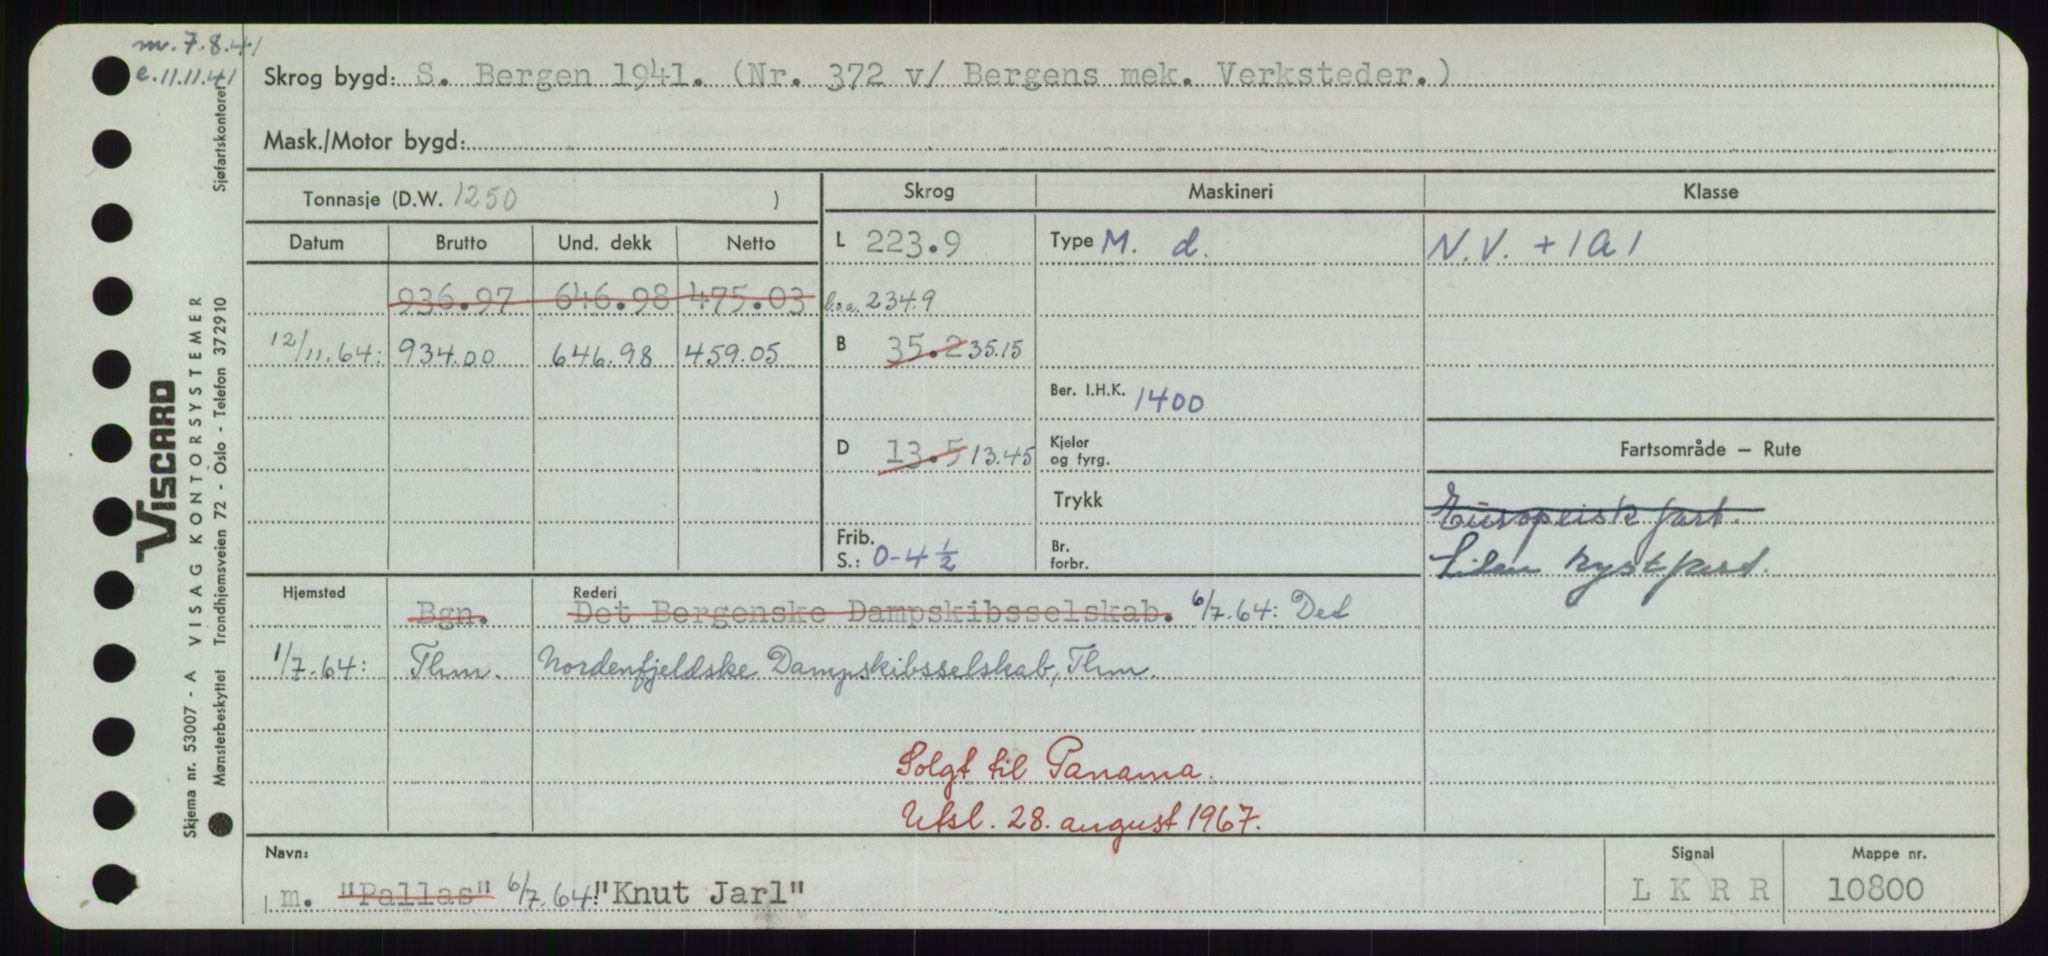 m. 7.8.41
e. 11.11.41
Skrog bygd: S. Bergen 1941. (Nr. 372 v/ Bergens mek. Verksteder.)
Mask./Motor bygd:
Tonnasje (D.W. 1250 )
Skrog Maskineri Klasse
Datum Brutto Und. dekk Netto
L 223.9 Type M. d. N.V. + 1A1
936.97 646.98 475.03 l.o.a. 234.9
12/11.64: 934.00 646.98 459.05 B 35.2 35.15
Ber. I.H.K. 1400
D 13.5 13.45 Kjeler og fyrg.
Fartsområde — Rute
Trykk
Europeisk fart.
Frib. S.: 0-4 ½ Br. forbr.
Liten kystfart.
Hjemsted Rederi
Bgn. Det Bergenske Dampskibsselskab. 6/7.64: Det
1/7.64: Thm. Nordenfjeldske Dampskibsselskab, Thm.
Solgt til Panama.
Utsl. 28. august 1967.
Navn: Signal Mappe nr.
m. "Pallas" 6/7.64: "Knut Jarl" LKRR 10800
Sjøfartskontoret
VISCARD
Skjema nr. 53007 - A VISAG KONTORSYSTEMER
Mønsterbeskyttet Trondhjemsveien 72 - Oslo - Telefon 372910